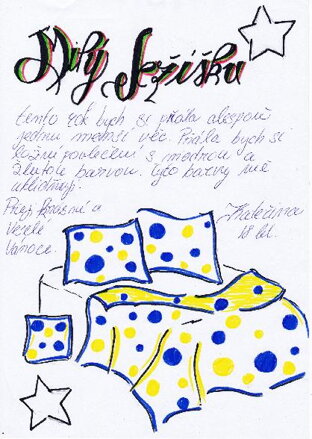 Milý Ježíšku
tento rok bych si přála alespoň
jednu menší věc. Přála bych si
ložní povlečení s modrou a
žlutou barvou. Tyto barvy mě
uklidňují.
Přeji krásné a
veselé
Vánoce.
Kateřina
18 let.